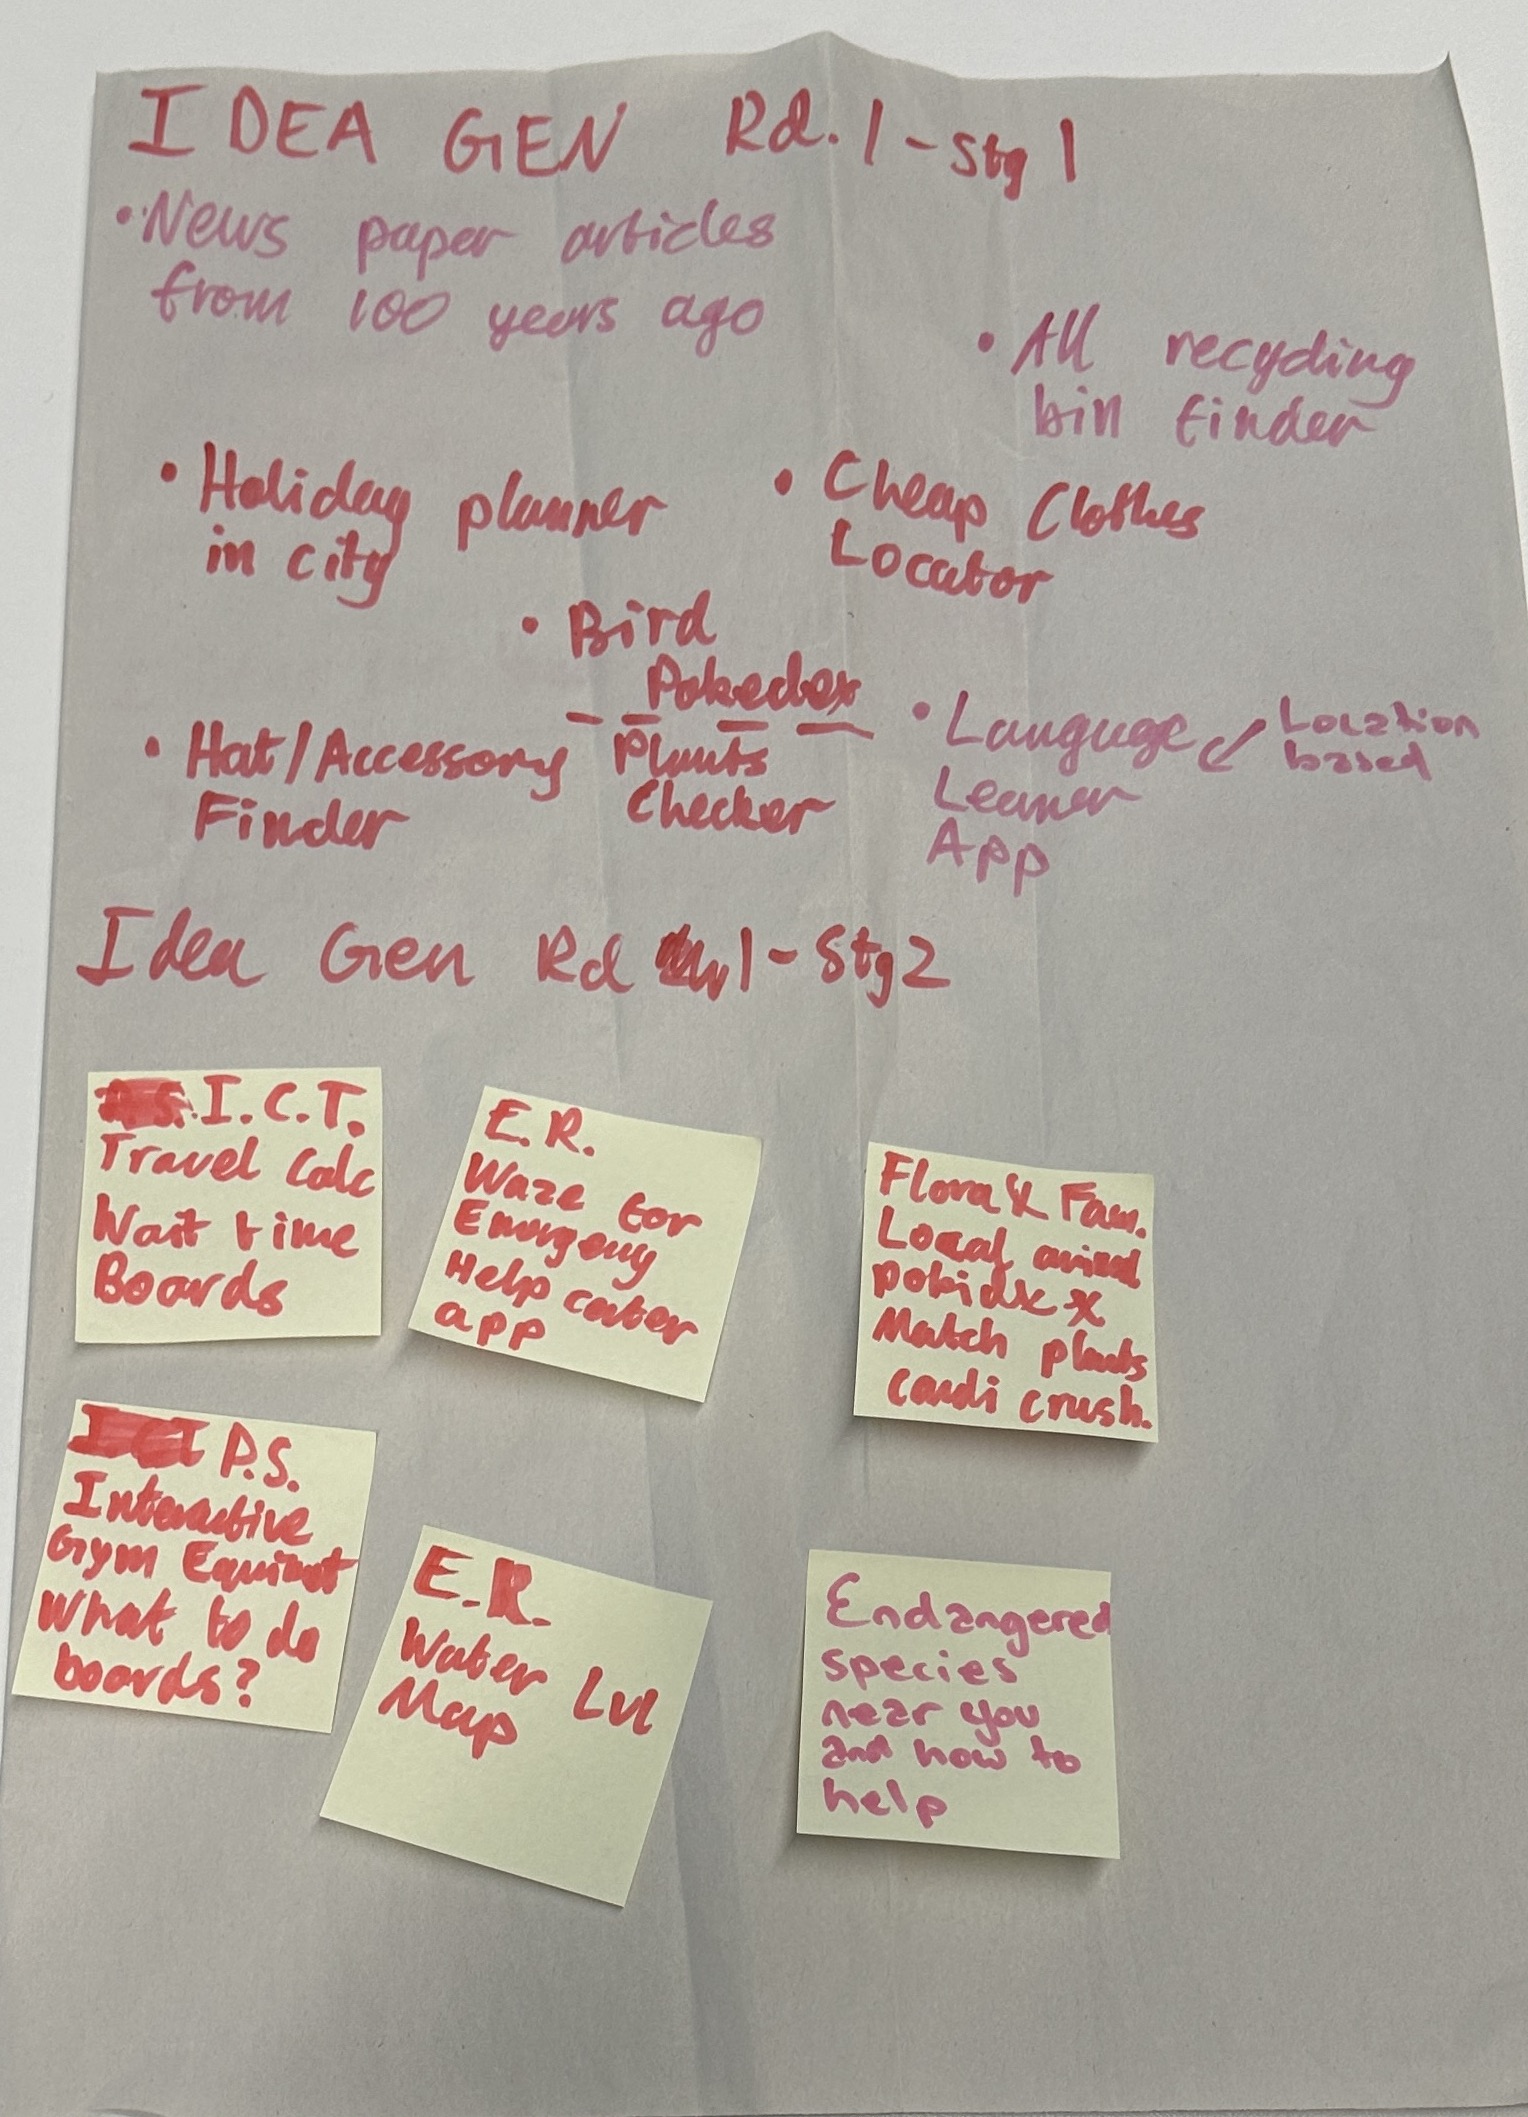 IDEA GEN Rd. 1 - Stg 1
• News paper articles
from 100 years ago
• All recycling
bin finder
• Holiday planner
in city
• Cheap Clothes
Locator
• Bird
Pokedex
Plants
Checker
• Hat/Accessory
Finder
• Language
Learner
App
Location
based
Idea Gen Rd 1 - Stg 2
I.C.T.
Travel Calc
Wait time
Boards
E.R.
Waze for
Emergeny
Help center
app
Flora & Faun.
Local animal
pokidex x
Match plants
candi crush.
P.S.
Interactive
Gym
What to do
boards?
E.R.
Water Lvl
Map
Endangered
species
near you
and how to
help